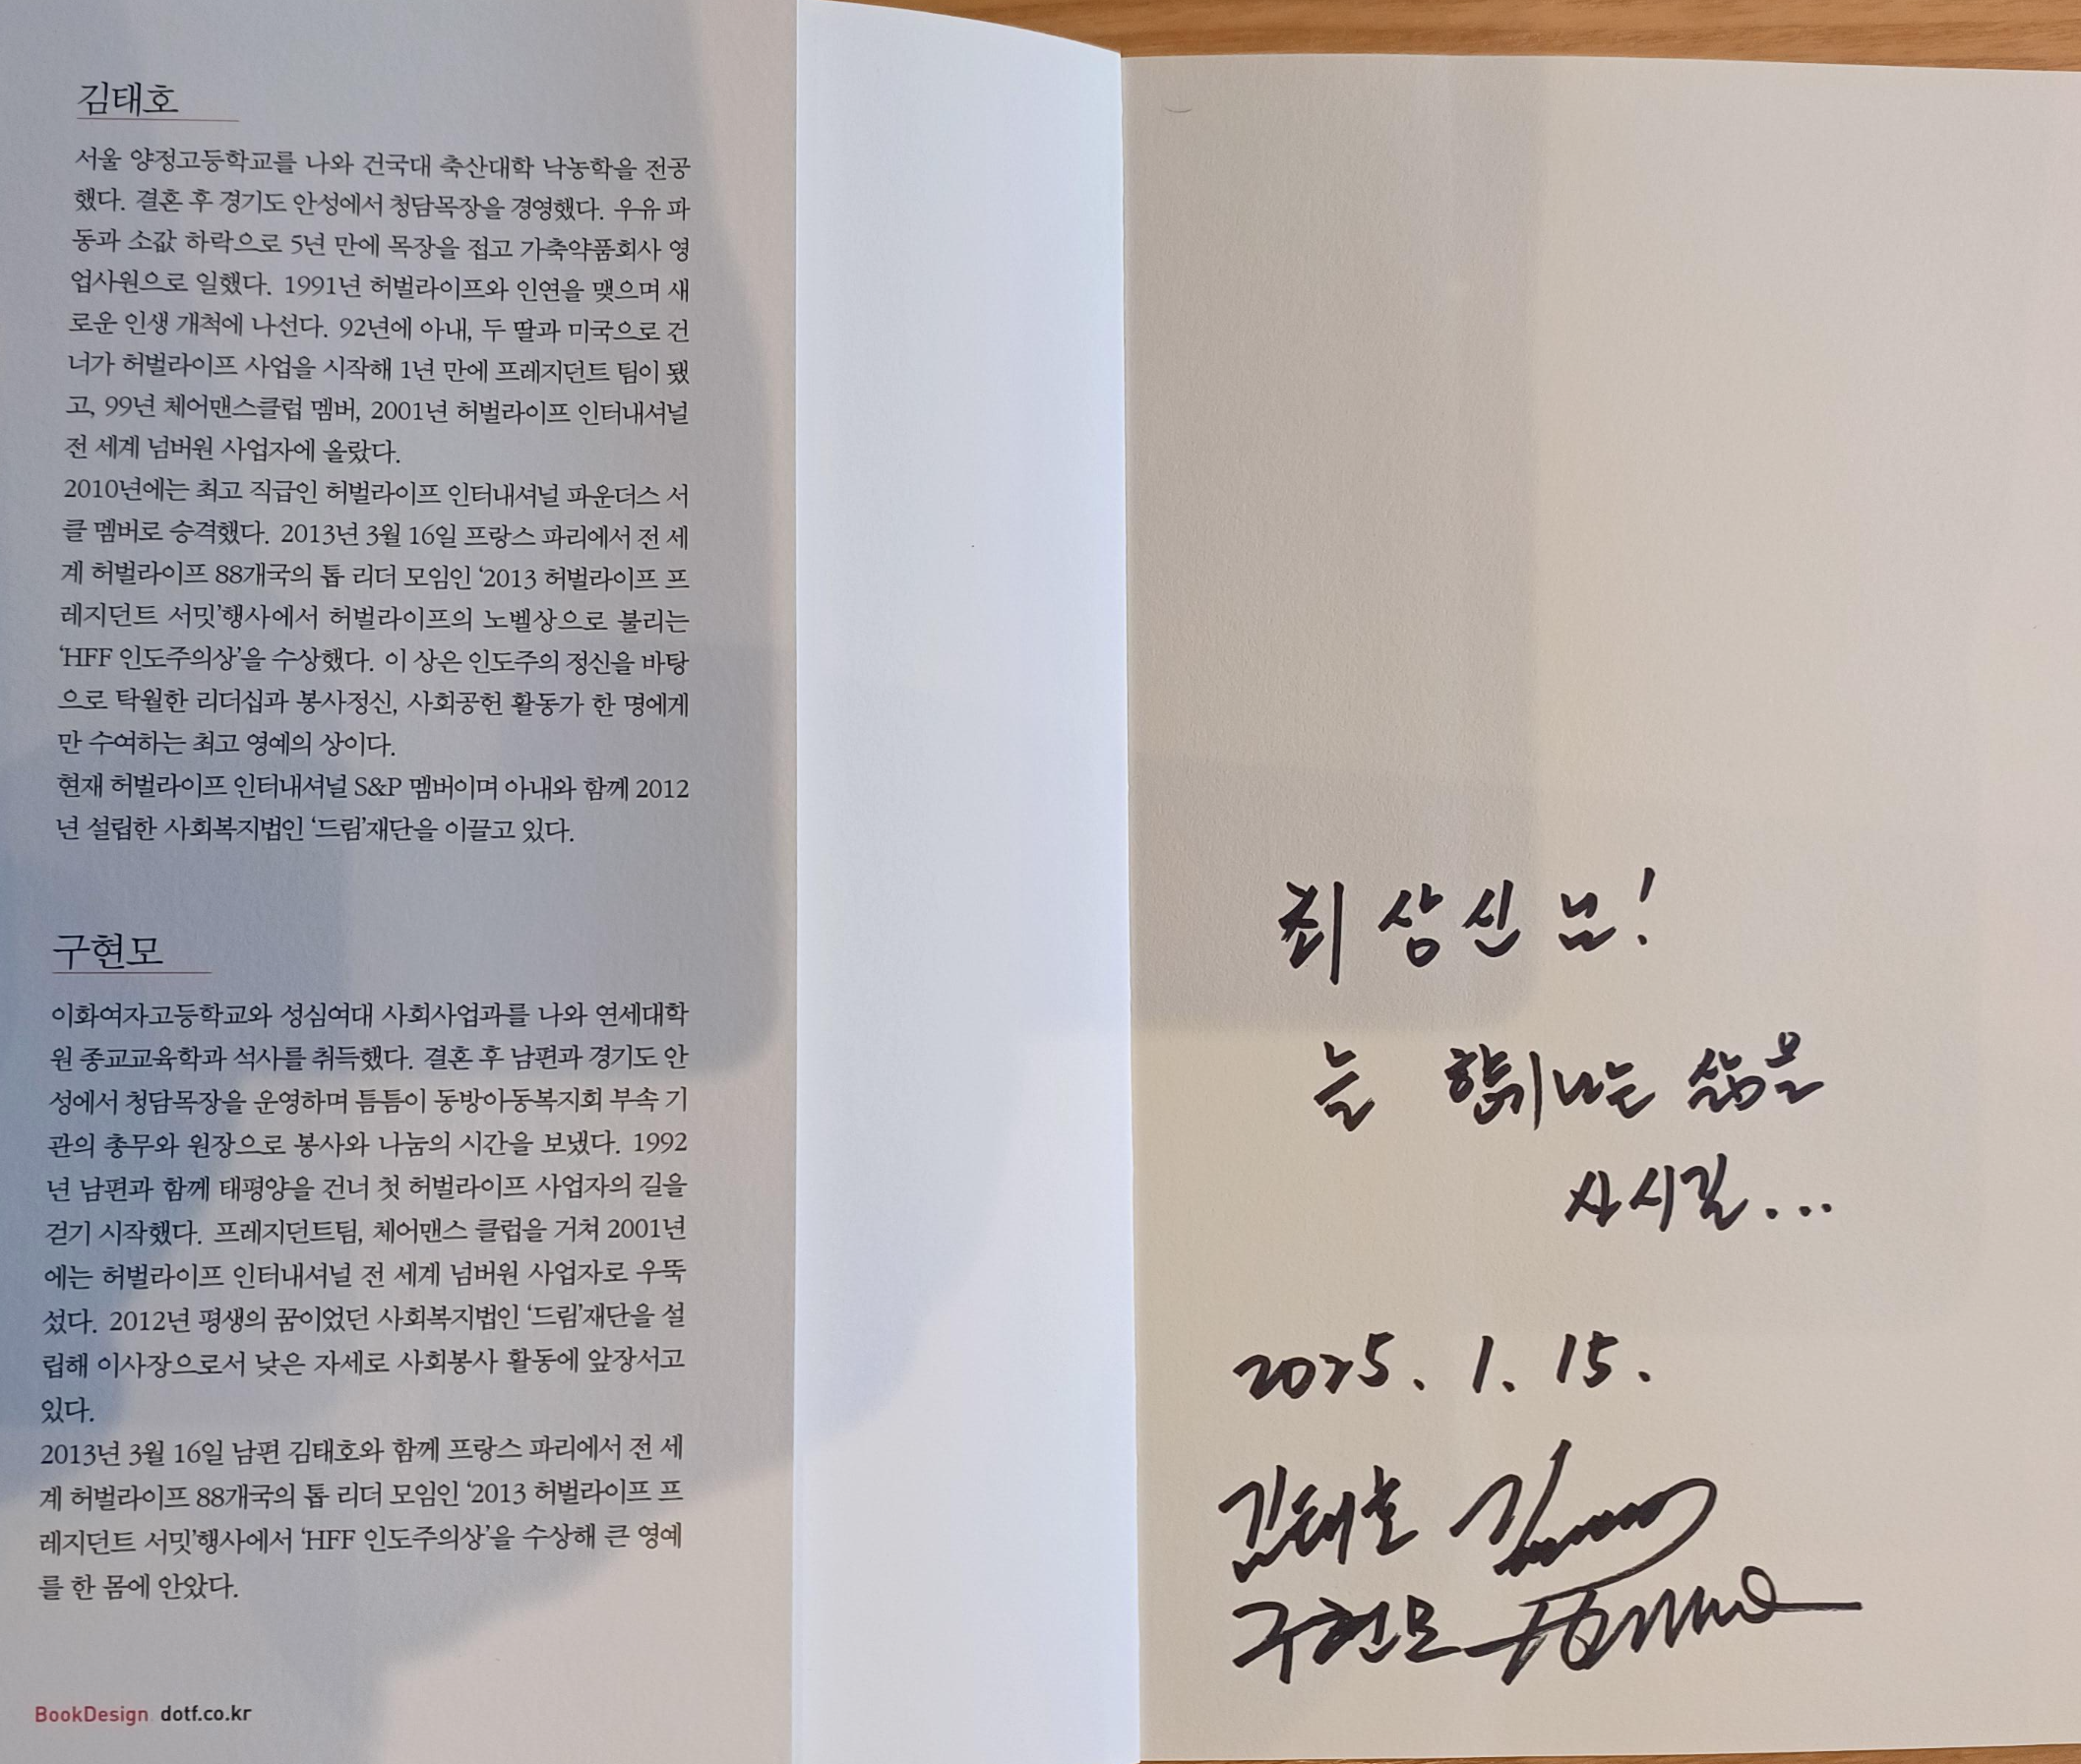 김태호
서울 양정고등학교를 나와 건국대 축산대학 낙농학을 전공
했다. 결혼 후 경기도 안성에서 청담목장을 경영했다. 우유 파
동과 소값 하락으로 5년 만에 목장을 접고 가축약품회사 영
업사원으로 일했다. 1991년 허벌라이프와 인연을 맺으며 새
로운 인생 개척에 나선다. 92년에 아내, 두 딸과 미국으로 건
너가 허벌라이프 사업을 시작해 1년 만에 프레지던트 팀이 됐
고, 99년 체어맨스클럽 멤버, 2001년 허벌라이프 인터내셔널
전 세계 넘버원 사업자에 올랐다.
2010년에는 최고 직급인 허벌라이프 인터내셔널 파운더스 서
클 멤버로 승격했다. 2013년 3월 16일 프랑스 파리에서 전 세
계 허벌라이프 88개국의 톱 리더 모임인 ‘2013 허벌라이프 프
레지던트 서밋’행사에서 허벌라이프의 노벨상으로 불리는
‘HFF 인도주의상’을 수상했다. 이 상은 인도주의 정신을 바탕
으로 탁월한 리더십과 봉사정신, 사회공헌 활동가 한 명에게
만 수여하는 최고 영예의 상이다.
현재 허벌라이프 인터내셔널 S&P 멤버이며 아내와 함께 2012
년 설립한 사회복지법인 ‘드림’재단을 이끌고 있다.
구현모
이화여자고등학교와 성심여대 사회사업과를 나와 연세대학
원 종교교육학과 석사를 취득했다. 결혼 후 남편과 경기도 안
성에서 청담목장을 운영하며 틈틈이 동방아동복지회 부속 기
관의 총무와 원장으로 봉사와 나눔의 시간을 보냈다. 1992
년 남편과 함께 태평양을 건너 첫 허벌라이프 사업자의 길을
걷기 시작했다. 프레지던트팀, 체어맨스 클럽을 거쳐 2001년
에는 허벌라이프 인터내셔널 전 세계 넘버원 사업자로 우뚝
섰다. 2012년 평생의 꿈이었던 사회복지법인 ‘드림’재단을 설
립해 이사장으로서 낮은 자세로 사회봉사 활동에 앞장서고
있다.
2013년 3월 16일 남편 김태호와 함께 프랑스 파리에서 전 세
계 허벌라이프 88개국의 톱 리더 모임인 ‘2013 허벌라이프 프
레지던트 서밋’행사에서 ‘HFF 인도주의상’을 수상해 큰 영예
를 한 몸에 안았다.
BookDesign dotf.co.kr
최상신 님!
늘 향기나는 삶을
사시길...
2025. 1. 15.
김태호
구현모